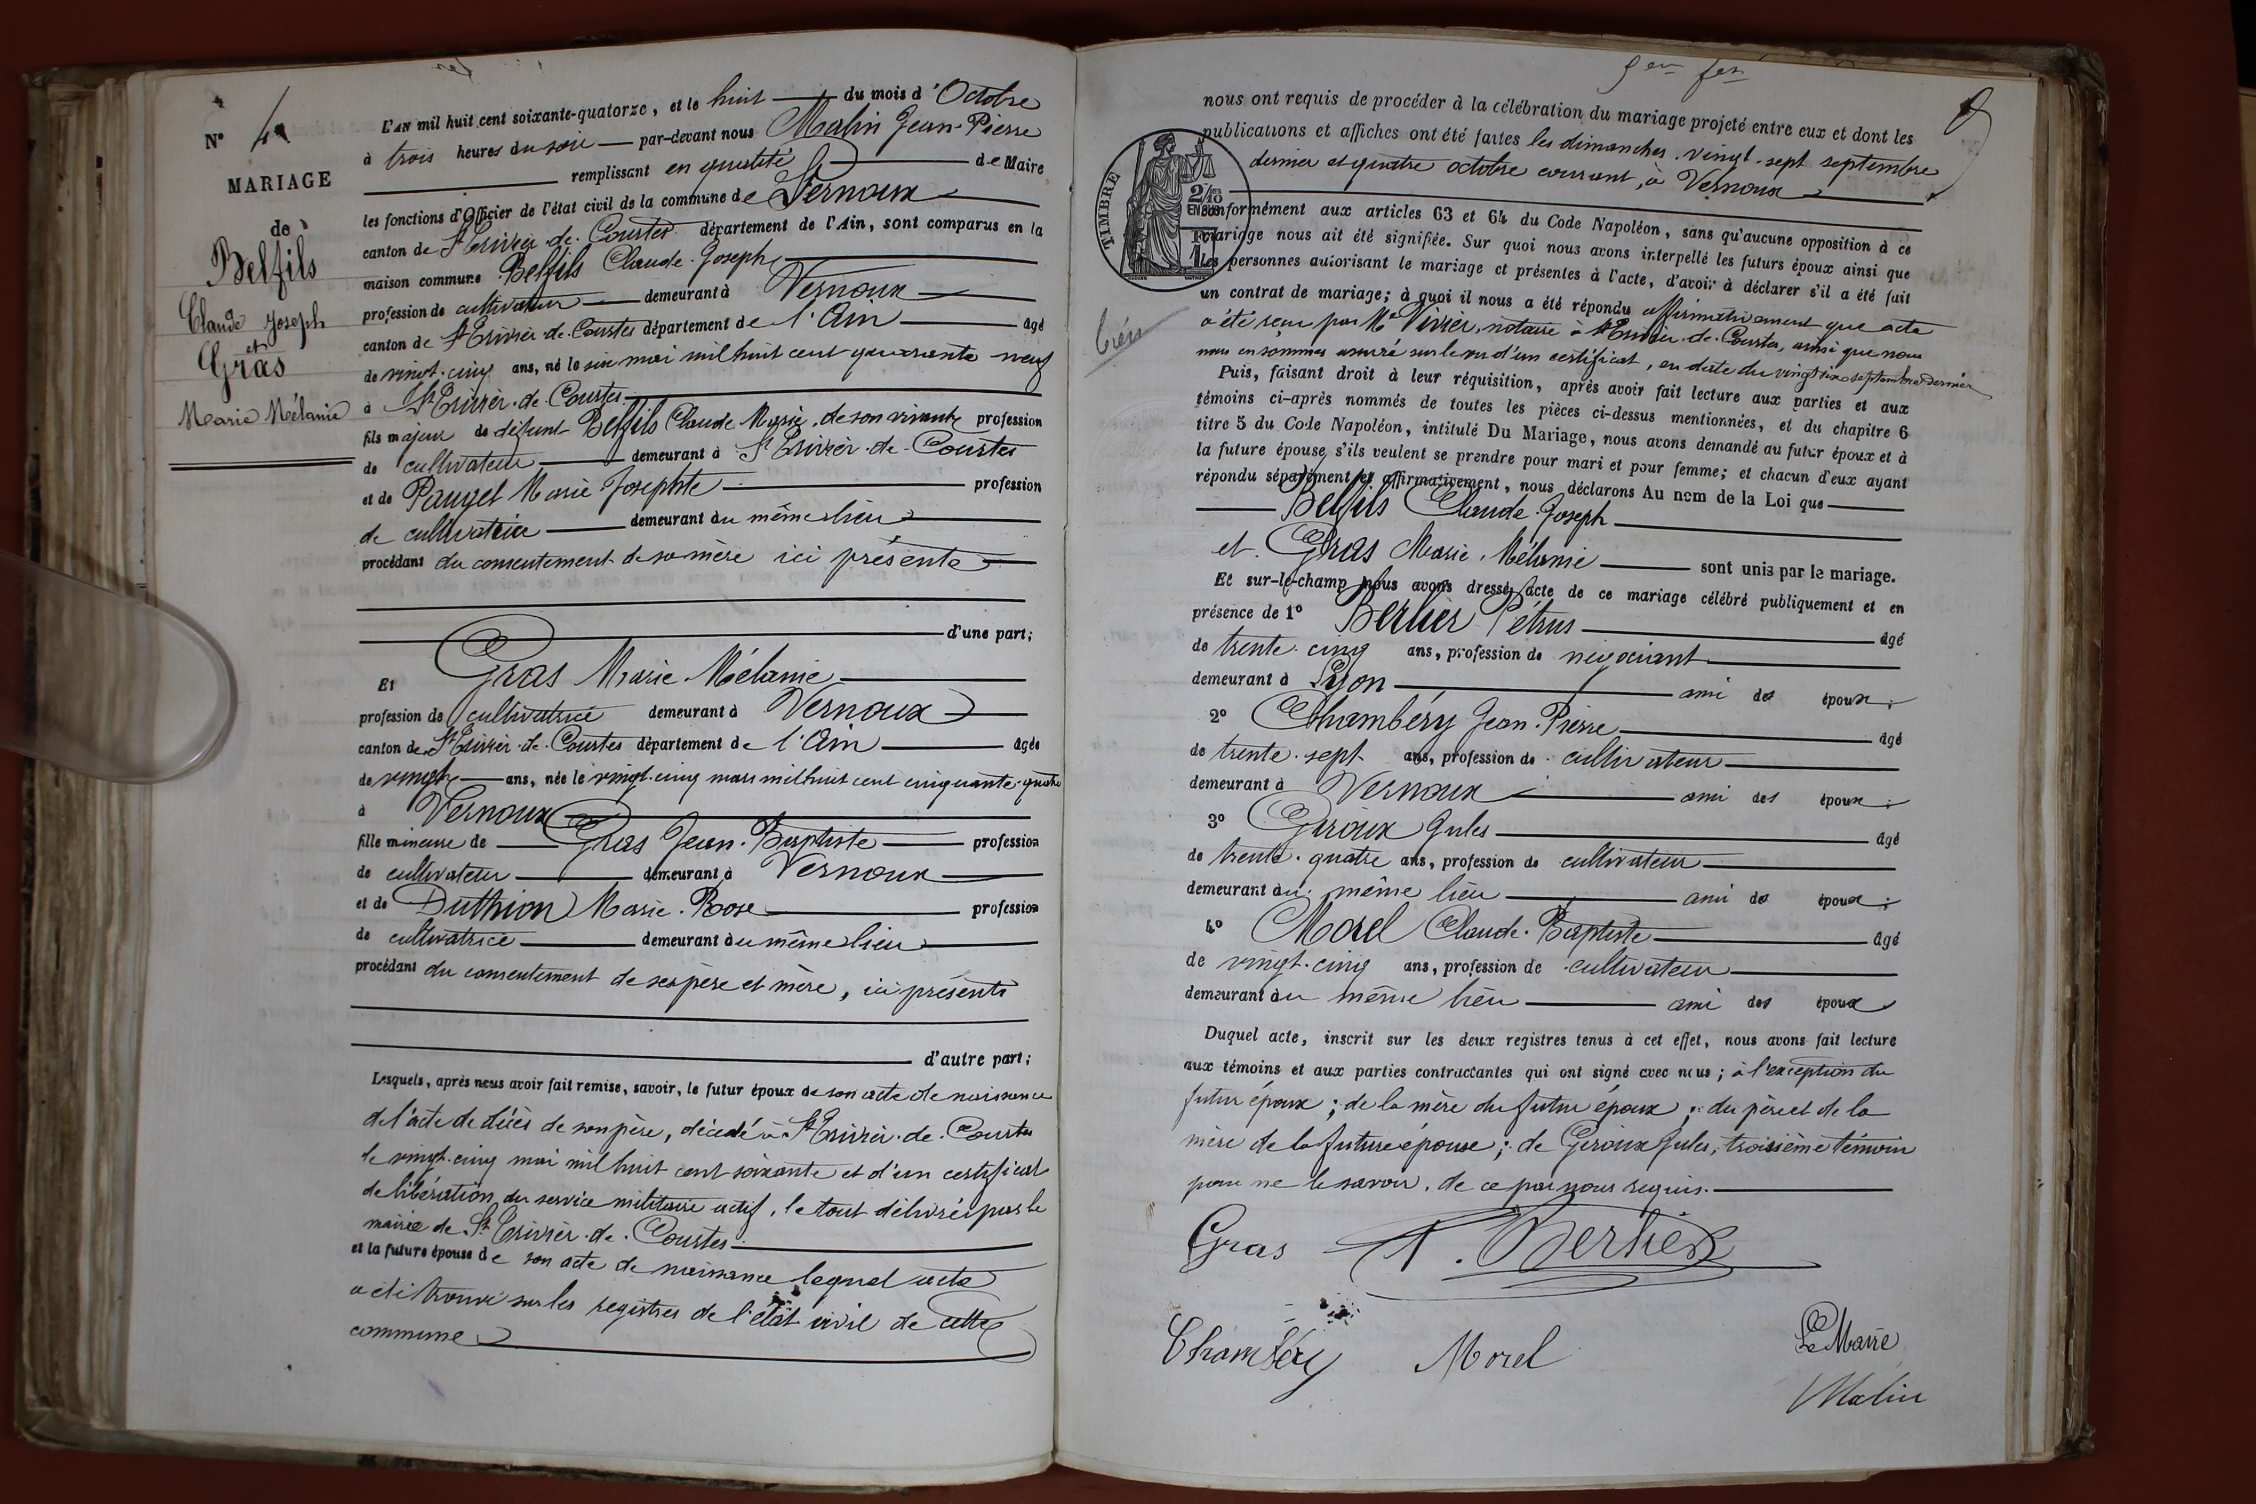 N° 4
MARIAGE
de
Belfils
Claude Joseph
et
Gras
Marie Mélanie
L'AN mil huit cent soixante-quatorze, et le huit du mois d'Octobre
à trois heures du soir par-devant nous Malin Jean-Pierre
remplissant en qualité de Maire
les fonctions d'Officier de l'état civil de la commune de Vernoux
canton de St Trivier-de-Courtes département de l'Ain, sont comparus en la
maison commune Belfils Claude-Joseph
profession de cultivateur demeurant à Vernoux
canton de St Trivier-de-Courtes département de l'Ain âgé
de vingt-cinq ans, né le six mai mil huit cent quarante neuf
à St Trivier-de-Courtes
fils majeur de défunt Belfils Claude Marie, de son vivant profession
de cultivateur demeurant à St Trivier-de-Courtes
et de Pauget Marie Josephte profession
de cultivatrice demeurant au même lieu
procédant du consentement de sa mère ici présente
d'une part;
Et Gras Marie Mélanie
profession de cultivatrice demeurant à Vernoux
canton de St Trivier-de-Courtes département de l'Ain âgée
de vingt ans, née le vingt-cinq mars mil huit cent cinquante-quatre
à Vernoux
fille mineure de Gras Jean-Baptiste profession
de cultivateur demeurant à Vernoux
et de Duthion Marie-Rose profession
de cultivatrice demeurant au même lieu
procédant du consentement de ses père et mère, ici présents
d'autre part;
Lesquels, après nous avoir fait remise, savoir, le futur époux de son acte de naissance
de l'acte de décès de son père, décédé à St Trivier-de-Courtes
le vingt-cinq mai mil huit cent soixante et d'un certificat
de libération du service militaire actif, le tout délivré par le
mairie de St Trivier-de-Courtes
et la future épouse de son acte de naissance lequel acte
a été trouvé sur les registres de l'état civil de cette
commune
nous ont requis de procéder à la célébration du mariage projeté entre eux et dont les
publications et affiches ont été faites les dimanches vingt-sept septembre
dernier et quatre octobre courant, à Vernoux
TIMBRE
2/10
EN SUS
conformément aux articles 63 et 64 du Code Napoléon, sans qu'aucune opposition à ce
mariage nous ait été signifiée. Sur quoi nous avons interpellé les futurs époux ainsi que
les personnes autorisant le mariage et présentes à l'acte, d'avoir à déclarer s'il a été fait
un contrat de mariage; à quoi il nous a été répondu affirmativement que acte
a été reçu par Me Vivier, notaire à St Trivier-de-Courtes, ainsi que nous
nous en sommes assuré sur le vu d'un certificat, en date du vingt six septembre dernier
Puis, faisant droit à leur réquisition, après avoir fait lecture aux parties et aux
témoins ci-après nommés de toutes les pièces ci-dessus mentionnées, et du chapitre 6
titre 5 du Code Napoléon, intitulé Du Mariage, nous avons demandé au futur époux et à
la future épouse s'ils veulent se prendre pour mari et pour femme; et chacun d'eux ayant
répondu séparément et affirmativement, nous déclarons Au nom de la Loi que
Belfils Claude-Joseph
et Gras Marie Mélanie sont unis par le mariage.
Et sur-le-champ nous avons dressé acte de ce mariage célébré publiquement et en
présence de 1° Berlier Pétrus âgé
de trente-cinq ans, profession de négociant
demeurant à Lyon ami des époux;
2° Chambéry Jean-Pierre âgé
de trente-sept ans, profession de cultivateur
demeurant à Vernoux ami des époux;
3° Giroux Jules âgé
de trente-quatre ans, profession de cultivateur
demeurant au même lieu ami des époux;
4° Morel Claude-Baptiste âgé
de vingt-cinq ans, profession de cultivateur
demeurant au même lieu ami des époux
Duquel acte, inscrit sur les deux registres tenus à cet effet, nous avons fait lecture
aux témoins et aux parties contractantes qui ont signé avec nous; à l'exception du
futur époux; de la mère du futur époux; du père et de la
mère de la future épouse; de Giroux Jules, troisième témoin
pour ne le savoir, de ce par nous requis.
Gras Berlier
Chambéry Morel Le Maire
Malin